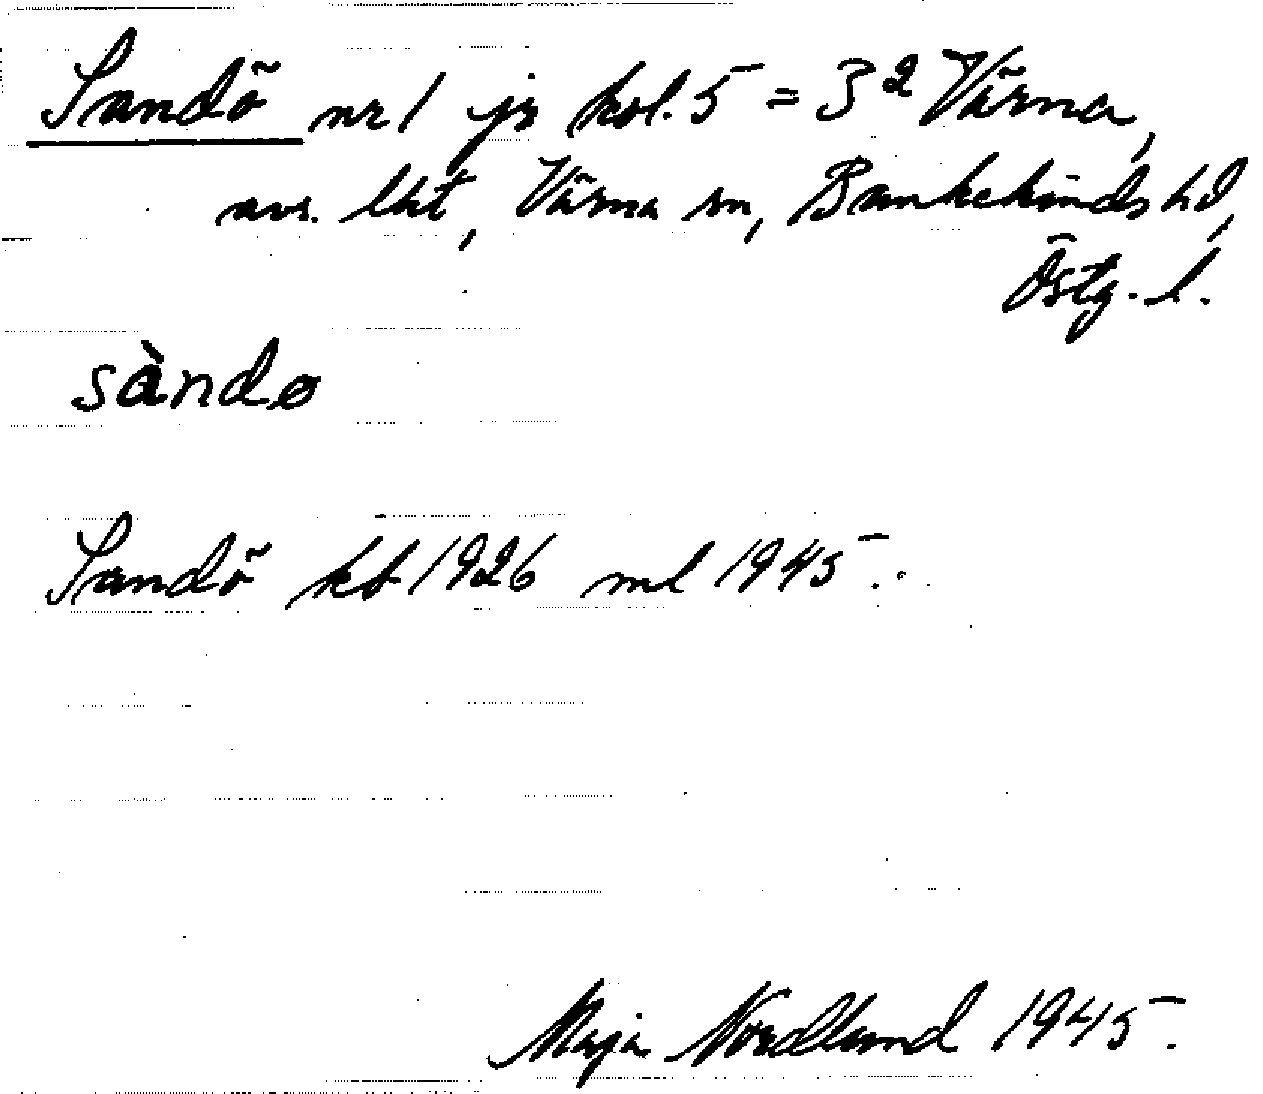 Sandö nr 1 jr kol. 5 = 3² Värna,
avs. lht, Värna sn, Bankekinds hd,
Östg. l.
sàndø
Sandö kb 1926 ml 1945.
Maja Nordlund 1945.